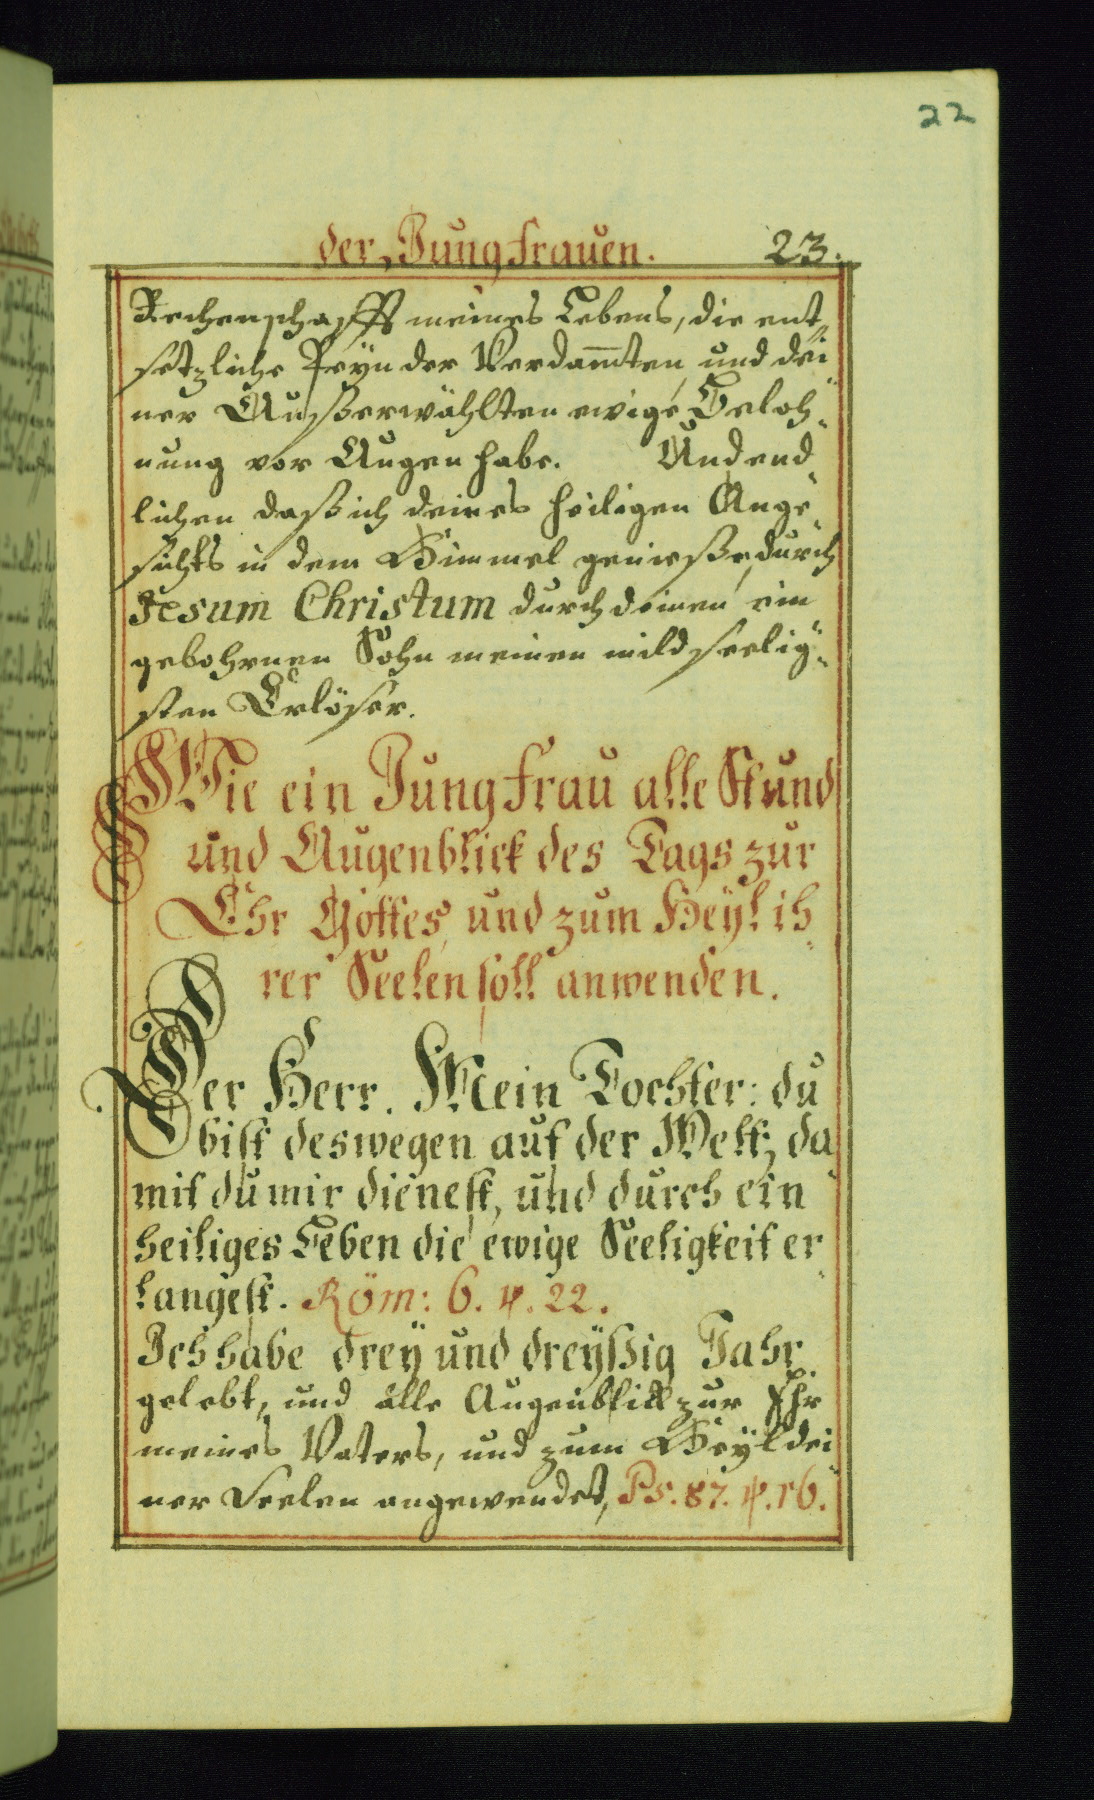 22
der Jungfrauen. 23.
Rechenschafft meines Lebens, die ent-
setzliche Peÿn der Verdam̄ten, und dei-
ner Außerwählten ewige Beloh-
nung vor Augen habe. Und end-
lichen daß ich deines heiligen Ange-
sichts in dem Himmel genieße, durch
Jesum Christum durch deinen ein-
gebohrnen Sohn meinen mildseelig-
sten Erlöser.
Wie ein Jungfrau alle Stund
und Augenblick des Tags zur
Ehr Gottes, und zum Heÿl ih-
rer Seelen soll anwenden.
Der Herr. Mein Tochter: du
bist deswegen auf der Welt, da-
mit du mir dienest, und durch ein
heiliges Leben die ewige Seeligkeit er-
langest. Röm: 6. ℣. 22.
Ich habe dreÿ und dreÿssig Jahr
gelebt, und alle Augenblick zur Ehr
meines Vaters, und zum Heÿl dei-
ner Seelen angewendet, Ps. 87. ℣. 16.